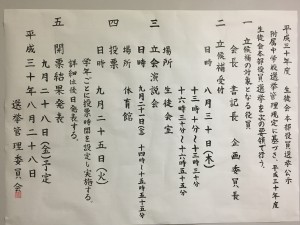 平成三十年度 生徒会本部役員選挙公示
附属中学校選挙管理規定に基づき、平成三十年度
生徒会本部役員選挙を次の要領で行う。
一 立候補の対象となる役員
会長 書記長 企画委員長
二 立候補受付
日時 八月三十日(木)
十三時十分〜十三時三十分
十六時三十分〜十六時五十五分
場所 生徒会室
三 立会演説会
日時 九月二十一日(金) 十四時〜十五時五十五分
場所 体育館
四 投票 九月二十五日(火)
学年ごとに投票時間を設定し実施する。
詳細は後日発表する。
五 開票結果発表
九月二十八日(金)予定
平成三十年八月二十八日
選挙管理委員会